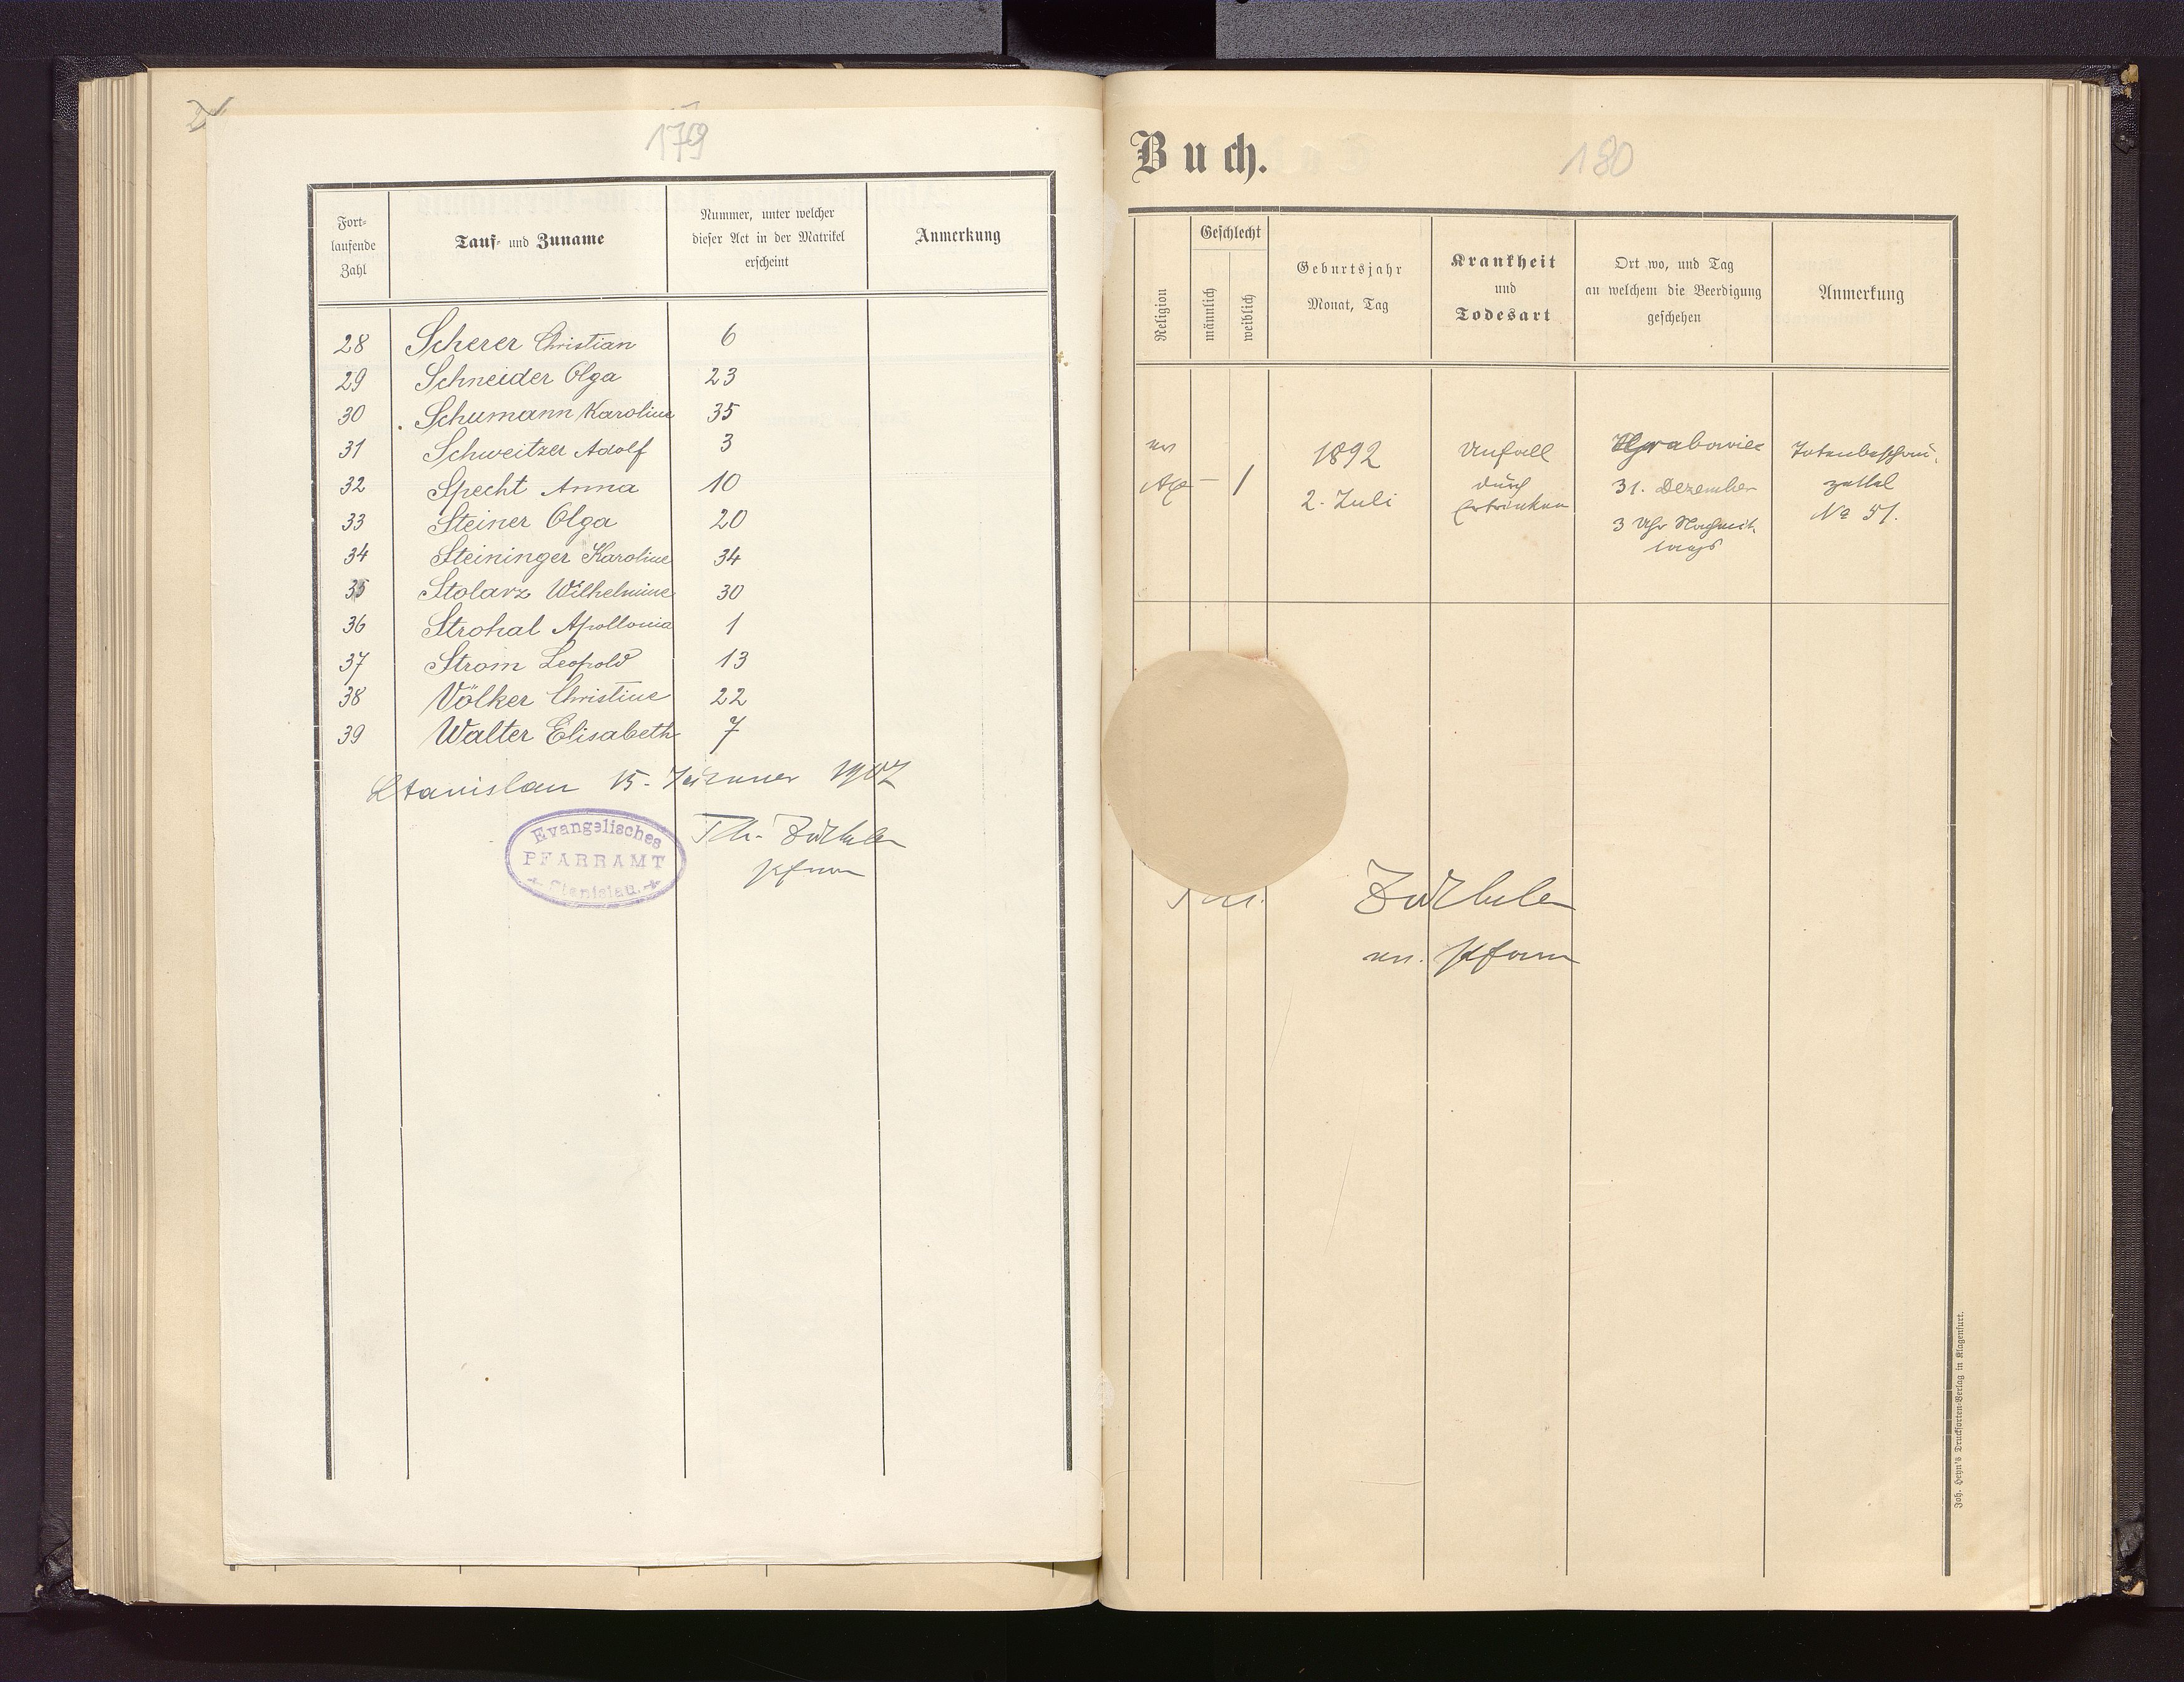 179
Fort-
laufende
Zahl
Tauf- und Zuname
Nummer, unter welcher
dieser Act in der Matrikel
erscheint
Anmerkung
28 Scherer Christian 6
29 Schneider Olga 23
30 Schumann Karoline 35
31 Schweitzer Adolf 3
32 Specht Anna 10
33 Steiner Olga 20
34 Steininger Karoline 34
35 Stolarz Wilhelmine 30
36 Strohal Apollonia 1
37 Strom Leopold 13
38 Völker Christine 22
39 Walter Elisabeth 7
Stanislau 15. Jänner 1907
Th. Zöckler
Pfarrer
Evangelisches
PFARRAMT
Stanislau.
Buch.
180
Religion
Geschlecht
männlich
weiblich
Geburtsjahr
Monat, Tag
Krankheit
und
Todesart
Ort wo, und Tag
an welchem die Beerdigung
geschehen
Anmerkung
ev.
AC
–
1
1892
2. Juli
Unfall
durch
Ertrinken
31. Dezember
3 Uhr Nachmit-
tags
Totenbeschau-
zettel
No 51.
Th. Zöckler
ev. Pfarrer
Joh. Heyn's Drucksorten-Verlag in Klagenfurt.